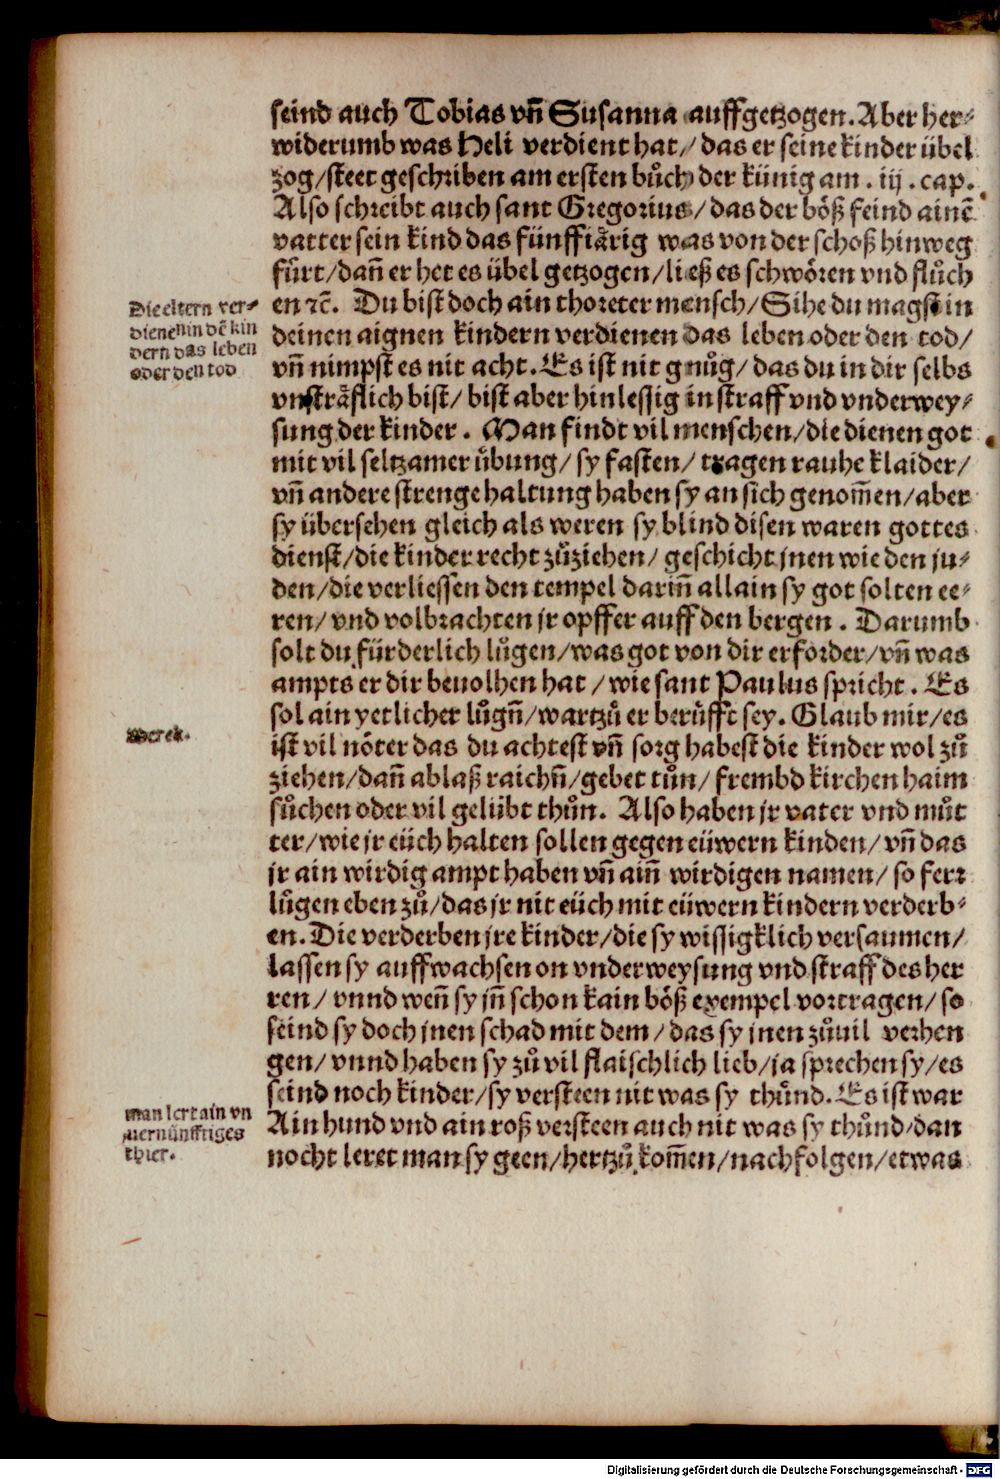 seind auch Tobias vñ Susanna auffgetzogen. Aber her⸗
widerumb was Heli verdient hat/ das er seine kinder übel
zog/steet geschriben am ersten bůch der künig am . iij . cap.
Also schreibt auch sant Gregorius/das der böß feind ainē
vatter sein kind das fünffiärig was von der schoß hinweg
fürt/dañ er het es übel getzogen/ließ es schwören vnd flůch
en ⁊c̄. Du bist doch ain thoreter mensch/Sihe du magst in
deinen aignen kindern verdienen das leben oder den tod/
vñ nimpst es nit acht. Es ist nit gnůg/das du in dir selbs
vnsträflich bist/bist aber hinlessig in straff vnd vnderwey⸗
sung der kinder . Man findt vil menschen/die dienen got
mit vil seltzamer übung/ sy fasten/ tragen rauhe klaider/
vñ andere strenge haltung haben sy an sich genom̄en/aber
sy übersehen gleich als weren sy blind disen waren gottes
dienst/die kinder recht zůziehen/ geschicht jnen wie den ju⸗
den/die verliessen den tempel darin̄ allain sy got solten ee⸗
ren/ vnd volbrachten jr opffer auff den bergen . Darumb
solt du fürderlich lůgen/was got von dir erforder/vñ was
ampts er dir beuolhen hat /wie sant Paulus spricht . Es
sol ain yetlicher lůgñ/wartzů er berůfft sey. Glaub mir/es
ist vil nöter das du achtest vñ sorg habest die kinder wol zů
ziehen/dañ ablaß raichñ/gebet tůn/ frembd kirchen haim
sůchen oder vil gelübt thůn. Also haben jr vater vnd můt
ter/wie jr eüch halten sollen gegen eüwern kinden/vñ das
jr ain wirdig ampt haben vñ aiñ wirdigen namen/ so ferꝛ
lůgen eben zů/das jr nit eüch mit eüwern kindern verderb⸗
en. Die verderben jre kinder/die sy wissigklich versaumen/
lassen sy auffwachsen on vnderweysung vnd straff des her
ren/ vnnd weñ sy jñ schon kain böß exempel vortragen/so
seind sy doch jnen schad mit dem/das sy jnen zůuil verhen
gen/ vnnd haben sy zů vil flaischlich lieb/ja sprechen sy/es
seind noch kinder/sy versteen nit was sy thůnd. Es ist war
Ain hund vnd ain roß versteen auch nit was sy thůnd/dan
nocht leret man sy geen/hertzů kom̄en/nachfolgen/etwas
Die eltern ver⸗
dienen in dē kin
dern das leben
oder den tod
Merck.
man lert ain vn
uernünfftiges
thier.
Digitalisierung gefördert durch die Deutsche Forschungsgemeinschaft - DFG